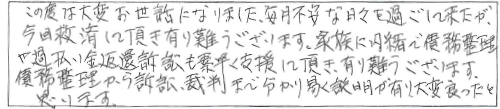 この度は大変お世話になりました、毎月不安な日々を過ごして来たが、
今回救済して頂き有り難うございます。家族に内緒で債務整理
や過払い金返還訴訟も素早く支援して頂き、有り難うございます。
債務整理から訴訟、裁判まで分かり易く説明が有り大変良ったと
思います。